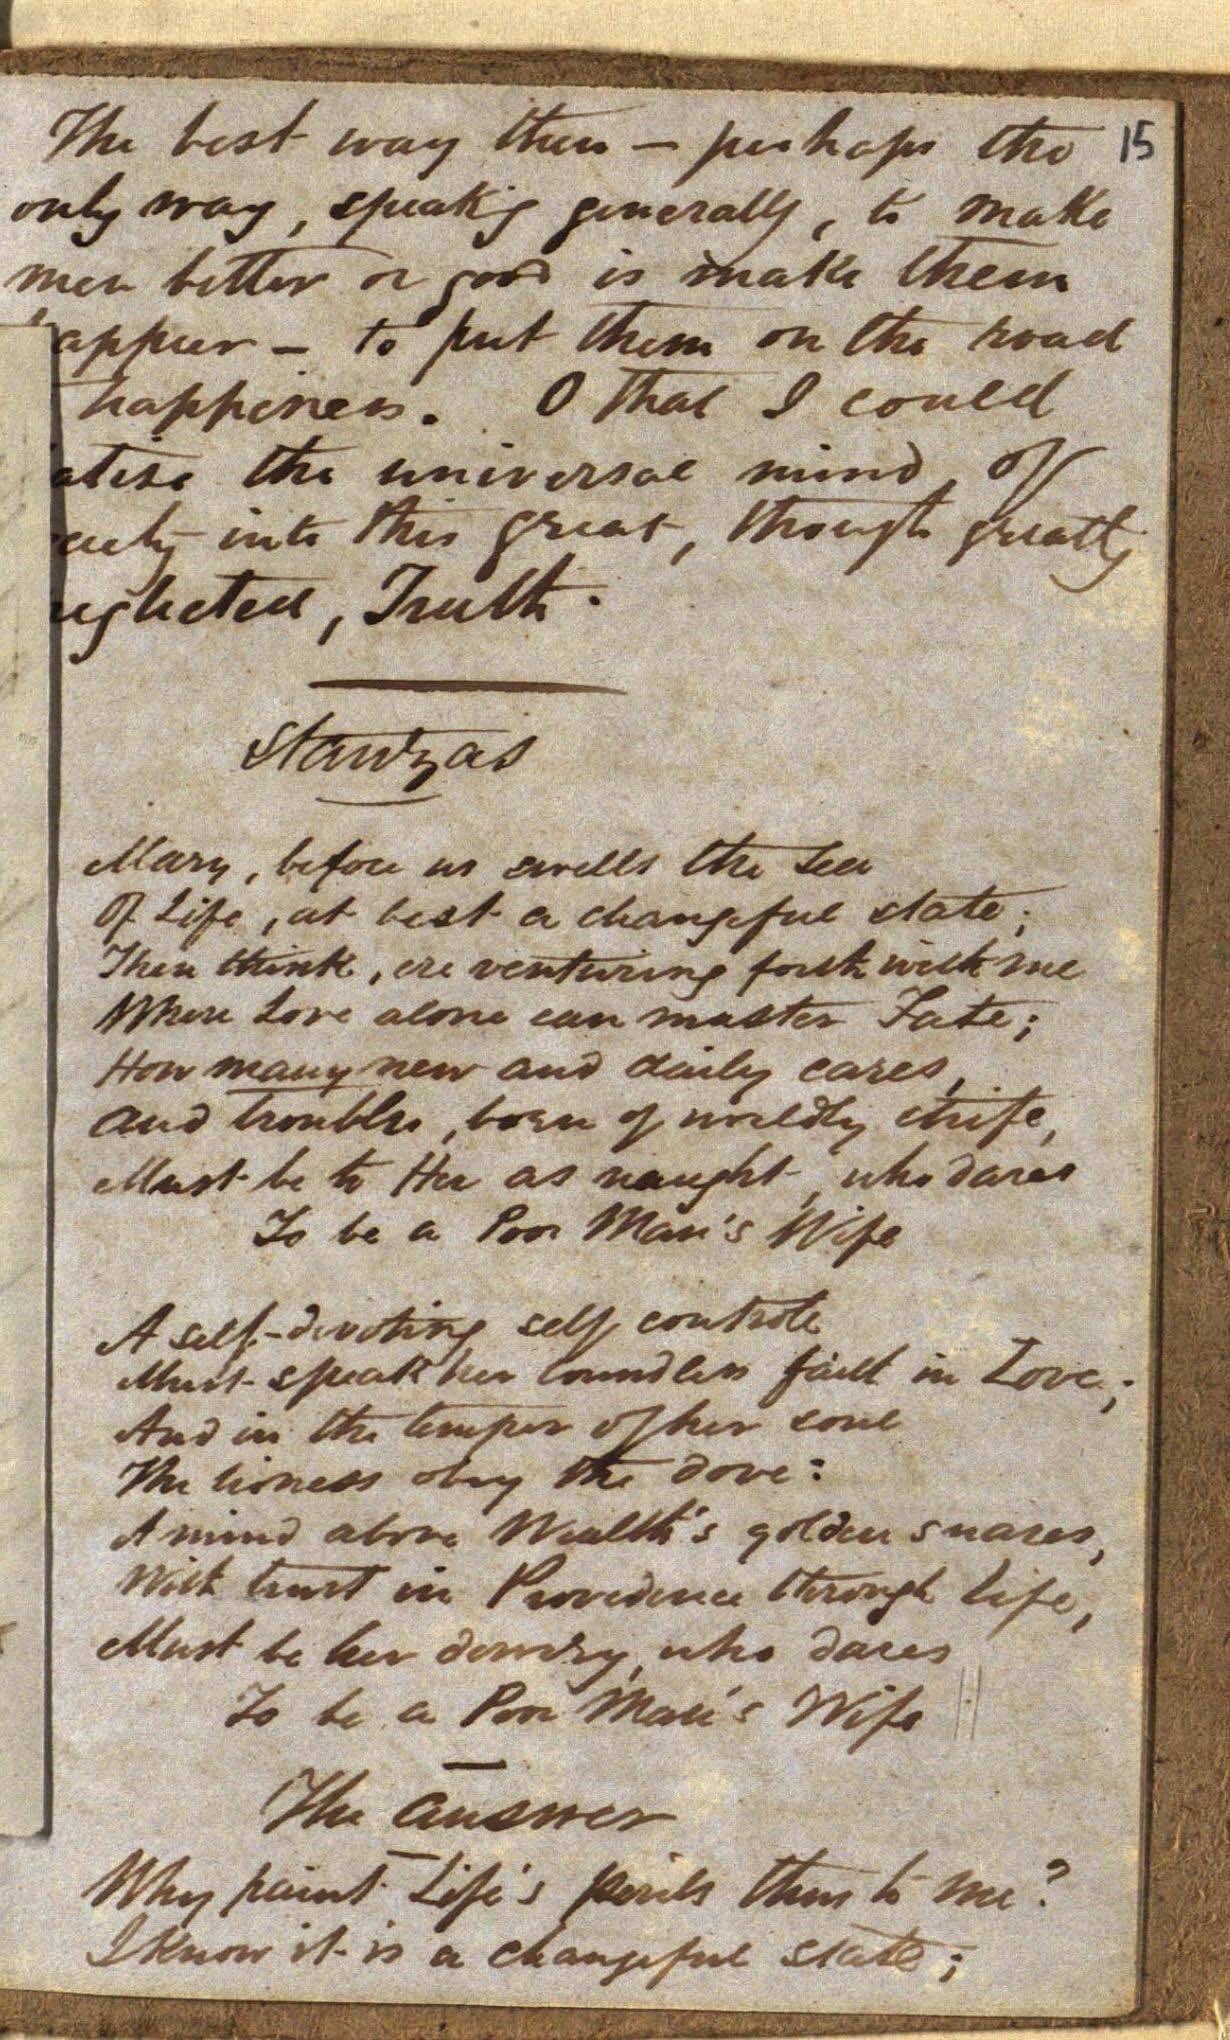 15
The best way then — perhaps the
only way, speak'g generally, to make
men better or good is make them
appier — to put them on the road
happiness. O that I could
atise the universal mind of
iety into this great, though greatly
eglected, Truth.
Stanzas
Mary, before us swells the Sea
Of Life, at best a changeful state;
Then think, ere venturing forth with me
Where Love alone can master Fate;
How many new and daily cares,
And troubles, born of worldly strife,
Must be to Her as naught, who dares
To be a Poor Man's Wife
A self-devoting self controle
Must speak her boundless faith in Love;
And in the temper of her soul
The lioness obey the dove:
A mind above Wealth's golden snares,
With trust in Providence through life,
Must be her dowry, who dares
To be a Poor Man's Wife
The Answer
Why paint Life's perils thus to me?
I know it is a changeful state;